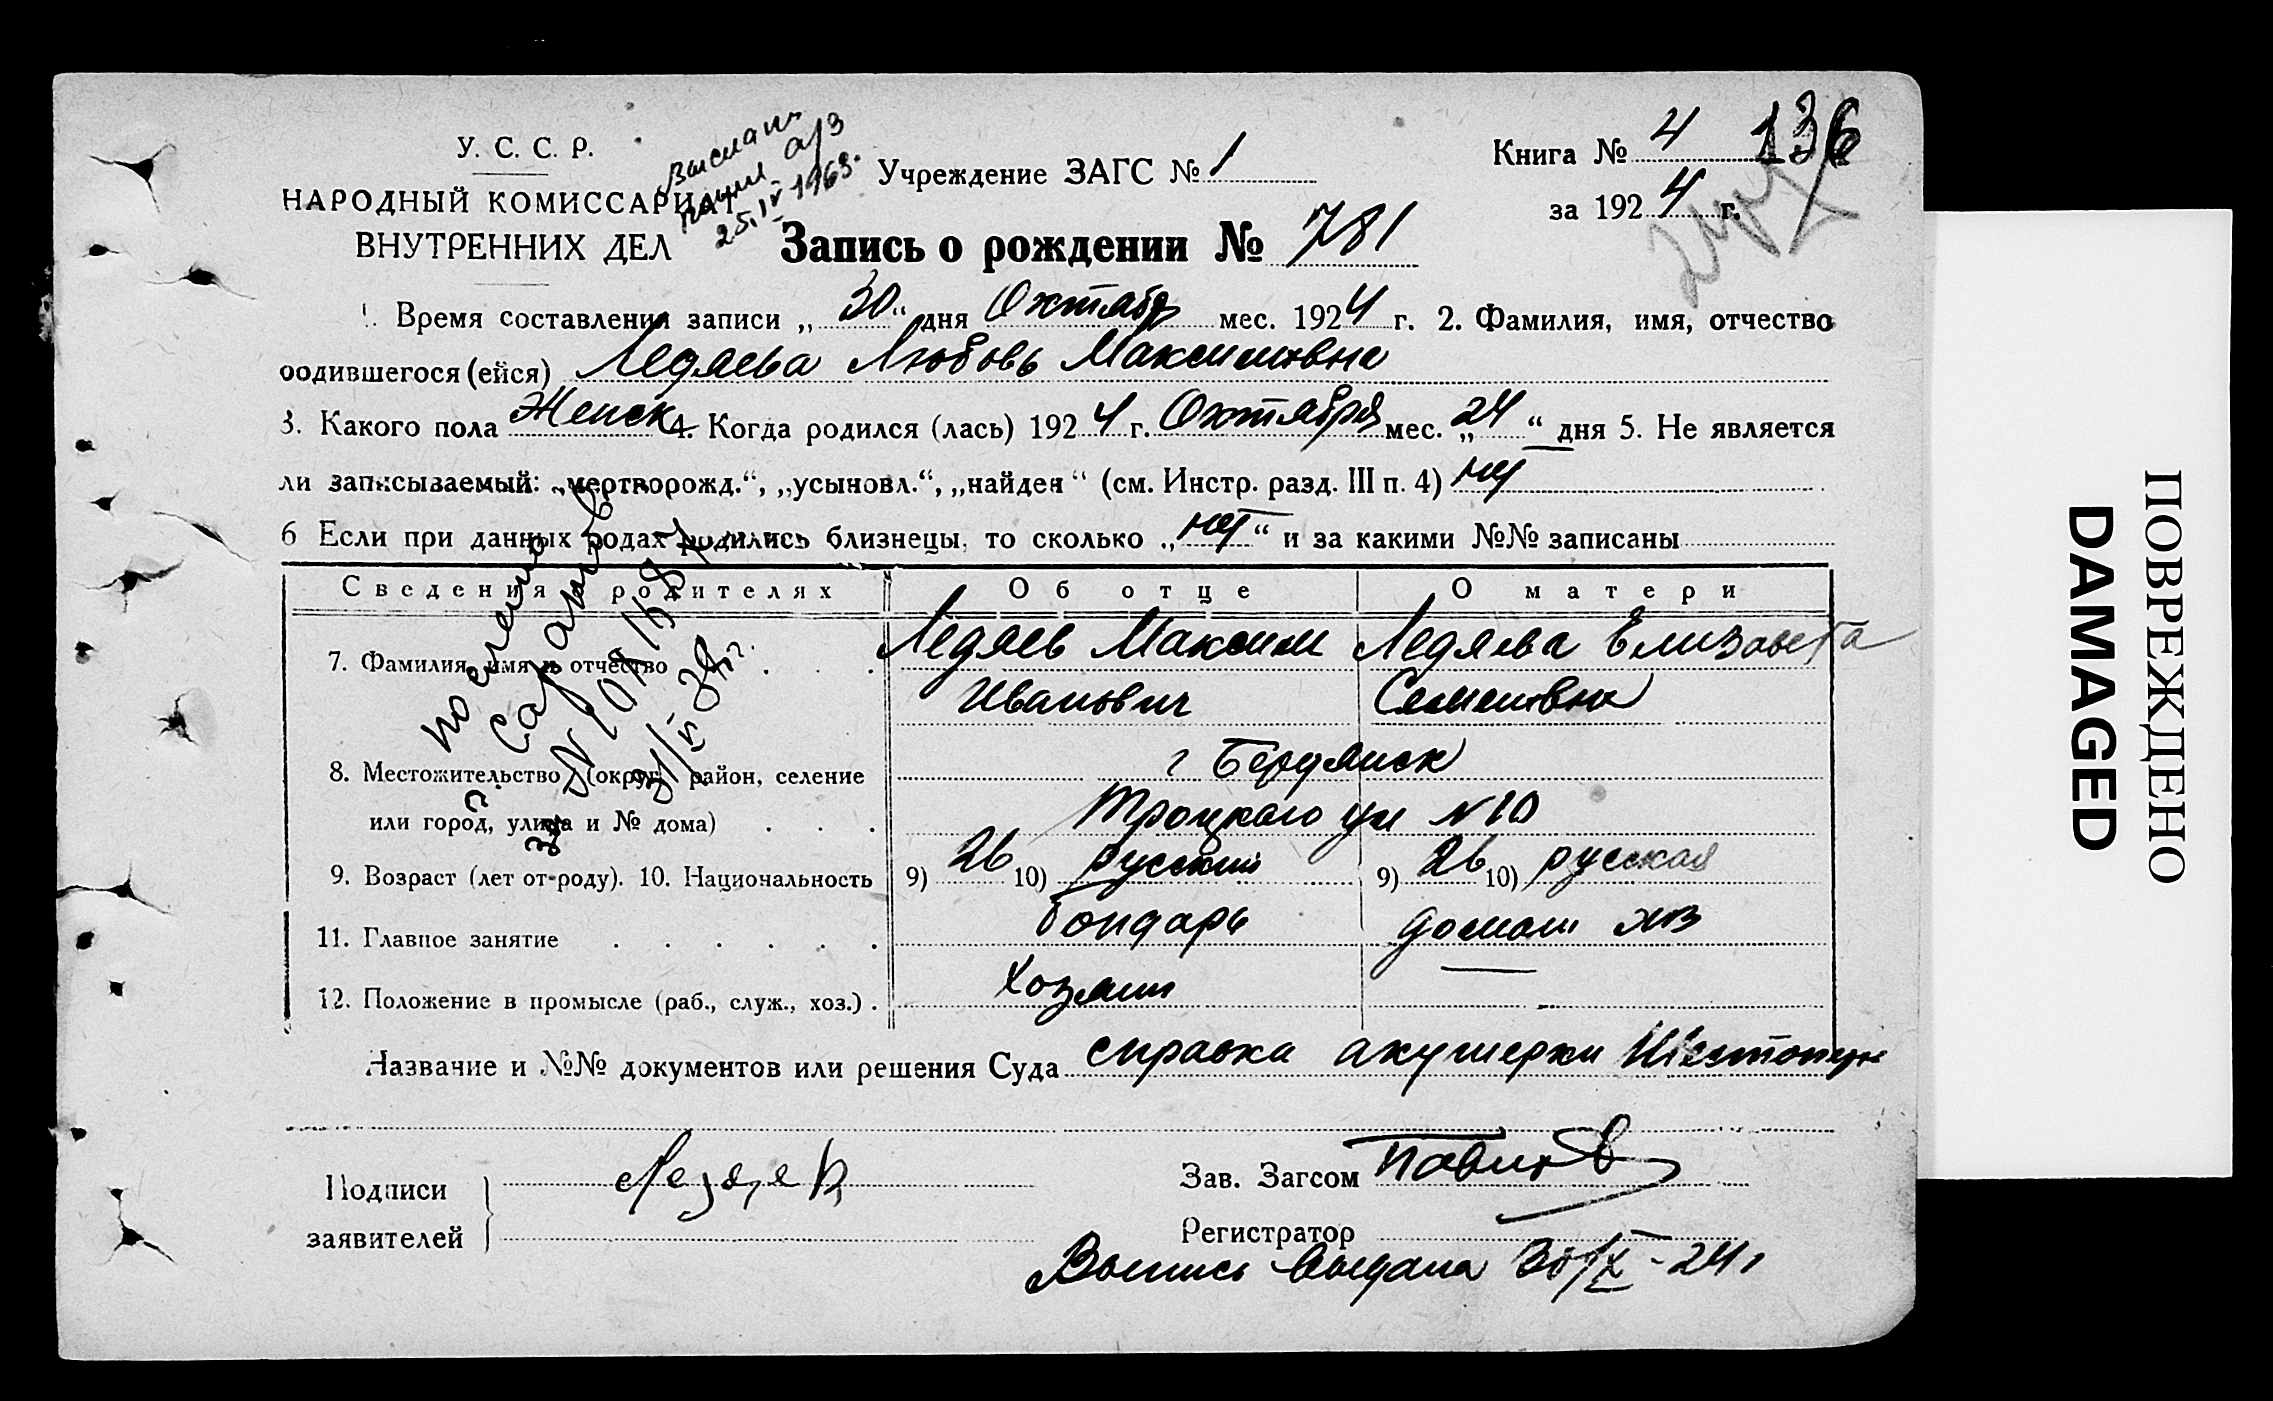 У. С. С. Р.
НАРОДНЫЙ КОМИССАРИАТ
ВНУТРЕННИХ ДЕЛ
25.IV 1963.
Учреждение ЗАГС № 1
Книга № 4 136
за 1924 г.
Запись о рождении № 781
1. Время составления записи „30“ дня Октябр мес. 1924 г. 2. Фамилия, имя, отчество
родившегося (ейся) Ледяева Любовь Максимовна
3. Какого пола Женск 4. Когда родился (лась) 1924 г. Октября мес. „24“ дня 5. Не является
ли записываемый: „мертворожд.“, „усыновл.“, „найден“ (см. Инстр. разд. III п. 4) нет
6 Если при данных родах родились близнецы, то сколько „нет“ и за какими №№ записаны
Сведения о родителях Об отце О матери
7. Фамилия, имя и отчество . . . Ледяев Максим Ледяева Елизавета
Иванович Семеновна
8. Местожительство (округ, район, селение г Бердянск
или город, улица и № дома) . . . Троцкого ул № 10
9. Возраст (лет от-роду). 10. Национальность 9) 26 10) русский 9) 26 10) русская
11. Главное занятие . . . . . . Бондарь домаш хоз
12. Положение в промысле (раб., служ., хоз.) . Хозяин —
Название и №№ документов или решения Суда справка акушерки
Подписи
заявителей
Ледяев
Зав. Загсом
Регистратор
Выпись выдана 30/X - 24 г
ПОВРЕЖДЕНО
DAMAGED